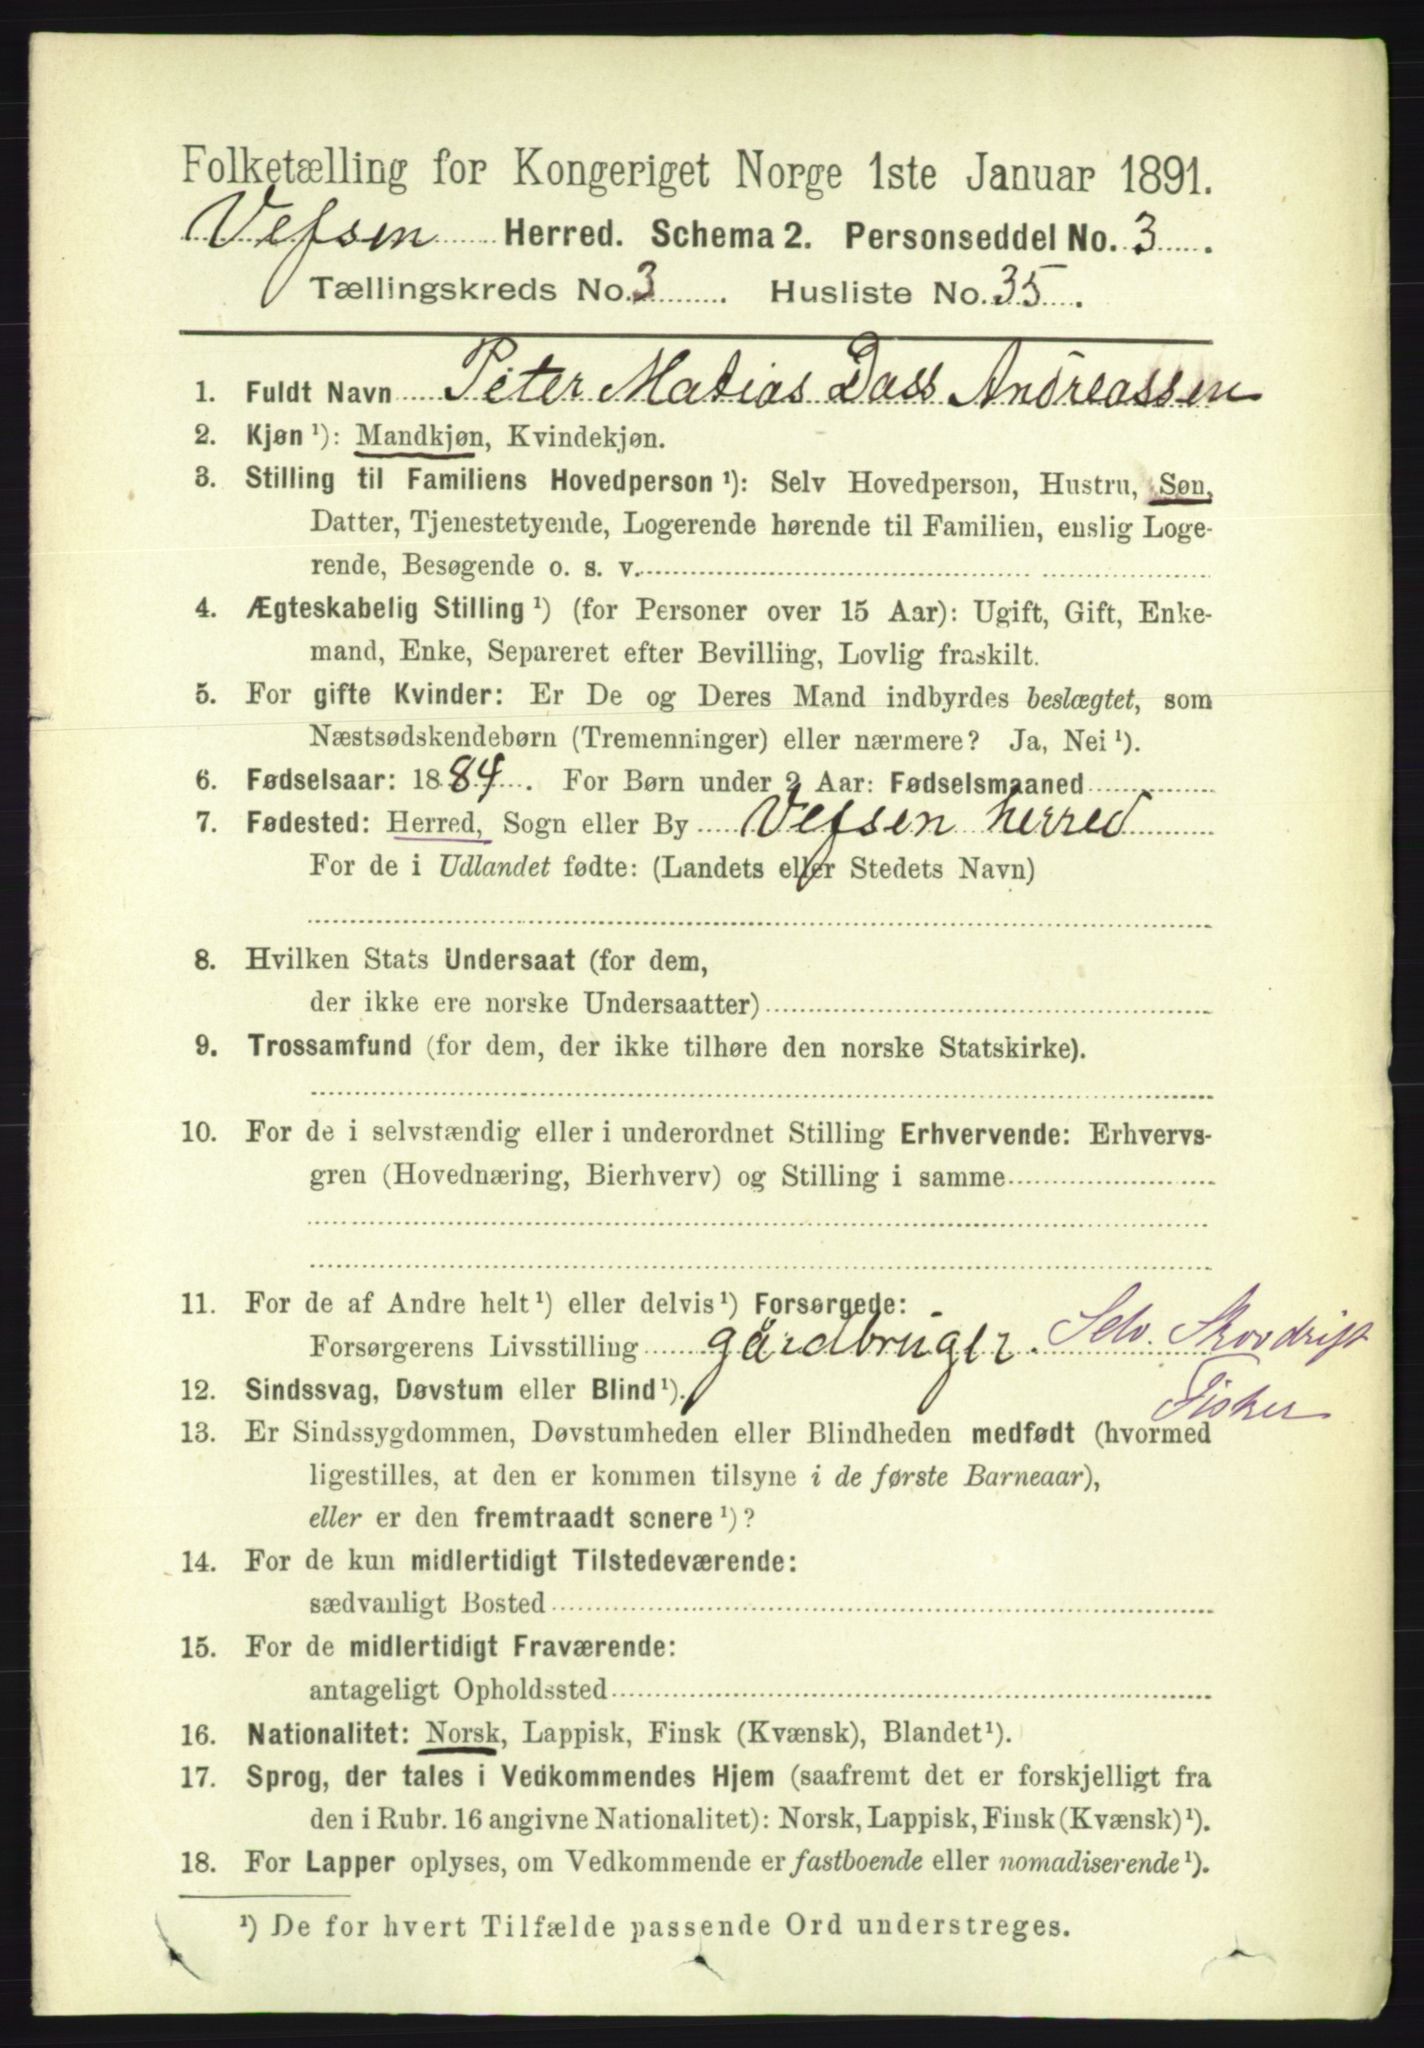 Folketælling for Kongeriget Norge 1ste Januar 1891.
Vefsen Herred. Schema 2. Personseddel No. 3.
Tællingskreds No. 3. Husliste No. 35.
1. Fuldt Navn Peter Matias Dass Andreassen
2. Kjøn¹): Mandkjøn, Kvindekjøn.
3. Stilling til Familiens Hovedperson¹): Selv Hovedperson, Hustru, Søn,
Datter, Tjenestetyende, Logerende hørende til Familien, enslig Loge-
rende, Besøgende o. s. v.
4. Ægteskabelig Stilling¹) (for Personer over 15 Aar): Ugift, Gift, Enke-
mand, Enke, Separeret efter Bevilling, Lovlig fraskilt.
5. For gifte Kvinder: Er De og Deres Mand indbyrdes beslægtet, som
Næstsødskendebørn (Tremenninger) eller nærmere? Ja, Nei¹).
6. Fødselsaar: 1884. For Børn under 2 Aar: Fødselsmaaned
7. Fødested: Herred, Sogn eller By Vefsen herred
For de i Udlandet fødte: (Landets eller Stedets Navn)
8. Hvilken Stats Undersaat (for dem,
der ikke ere norske Undersaatter)
9. Trossamfund (for dem, der ikke tilhøre den norske Statskirke).
10. For de i selvstændig eller i underordnet Stilling Erhvervende: Erhvervs-
gren (Hovednæring, Bierhverv) og Stilling i samme
11. For de af Andre helt¹) eller delvis¹) Forsørgede:
Forsørgerens Livsstilling gårdbruger. Selv. Skovdrift
Fisker
12. Sindssvag, Døvstum eller Blind¹).
13. Er Sindssygdommen, Døvstumheden eller Blindheden medfødt (hvormed
ligestilles, at den er kommen tilsyne i de første Barneaar),
eller er den fremtraadt senere¹)?
14. For de kun midlertidigt Tilstedeværende:
sædvanligt Bosted
15. For de midlertidigt Fraværende:
antageligt Opholdssted
16. Nationalitet: Norsk, Lappisk, Finsk (Kvænsk), Blandet¹).
17. Sprog, der tales i Vedkommendes Hjem (saafremt det er forskjelligt fra
den i Rubr. 16 angivne Nationalitet): Norsk, Lappisk, Finsk (Kvænsk)¹).
18. For Lapper oplyses, om Vedkommende er fastboende eller nomadiserende¹).
¹) De for hvert Tilfælde passende Ord understreges.